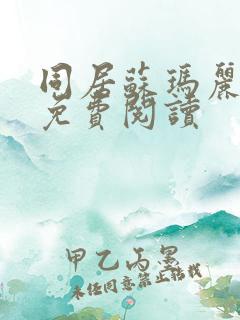 同居蘇瑪麗
免費閱讀
甲乙丙墨
未經同意禁止轉載